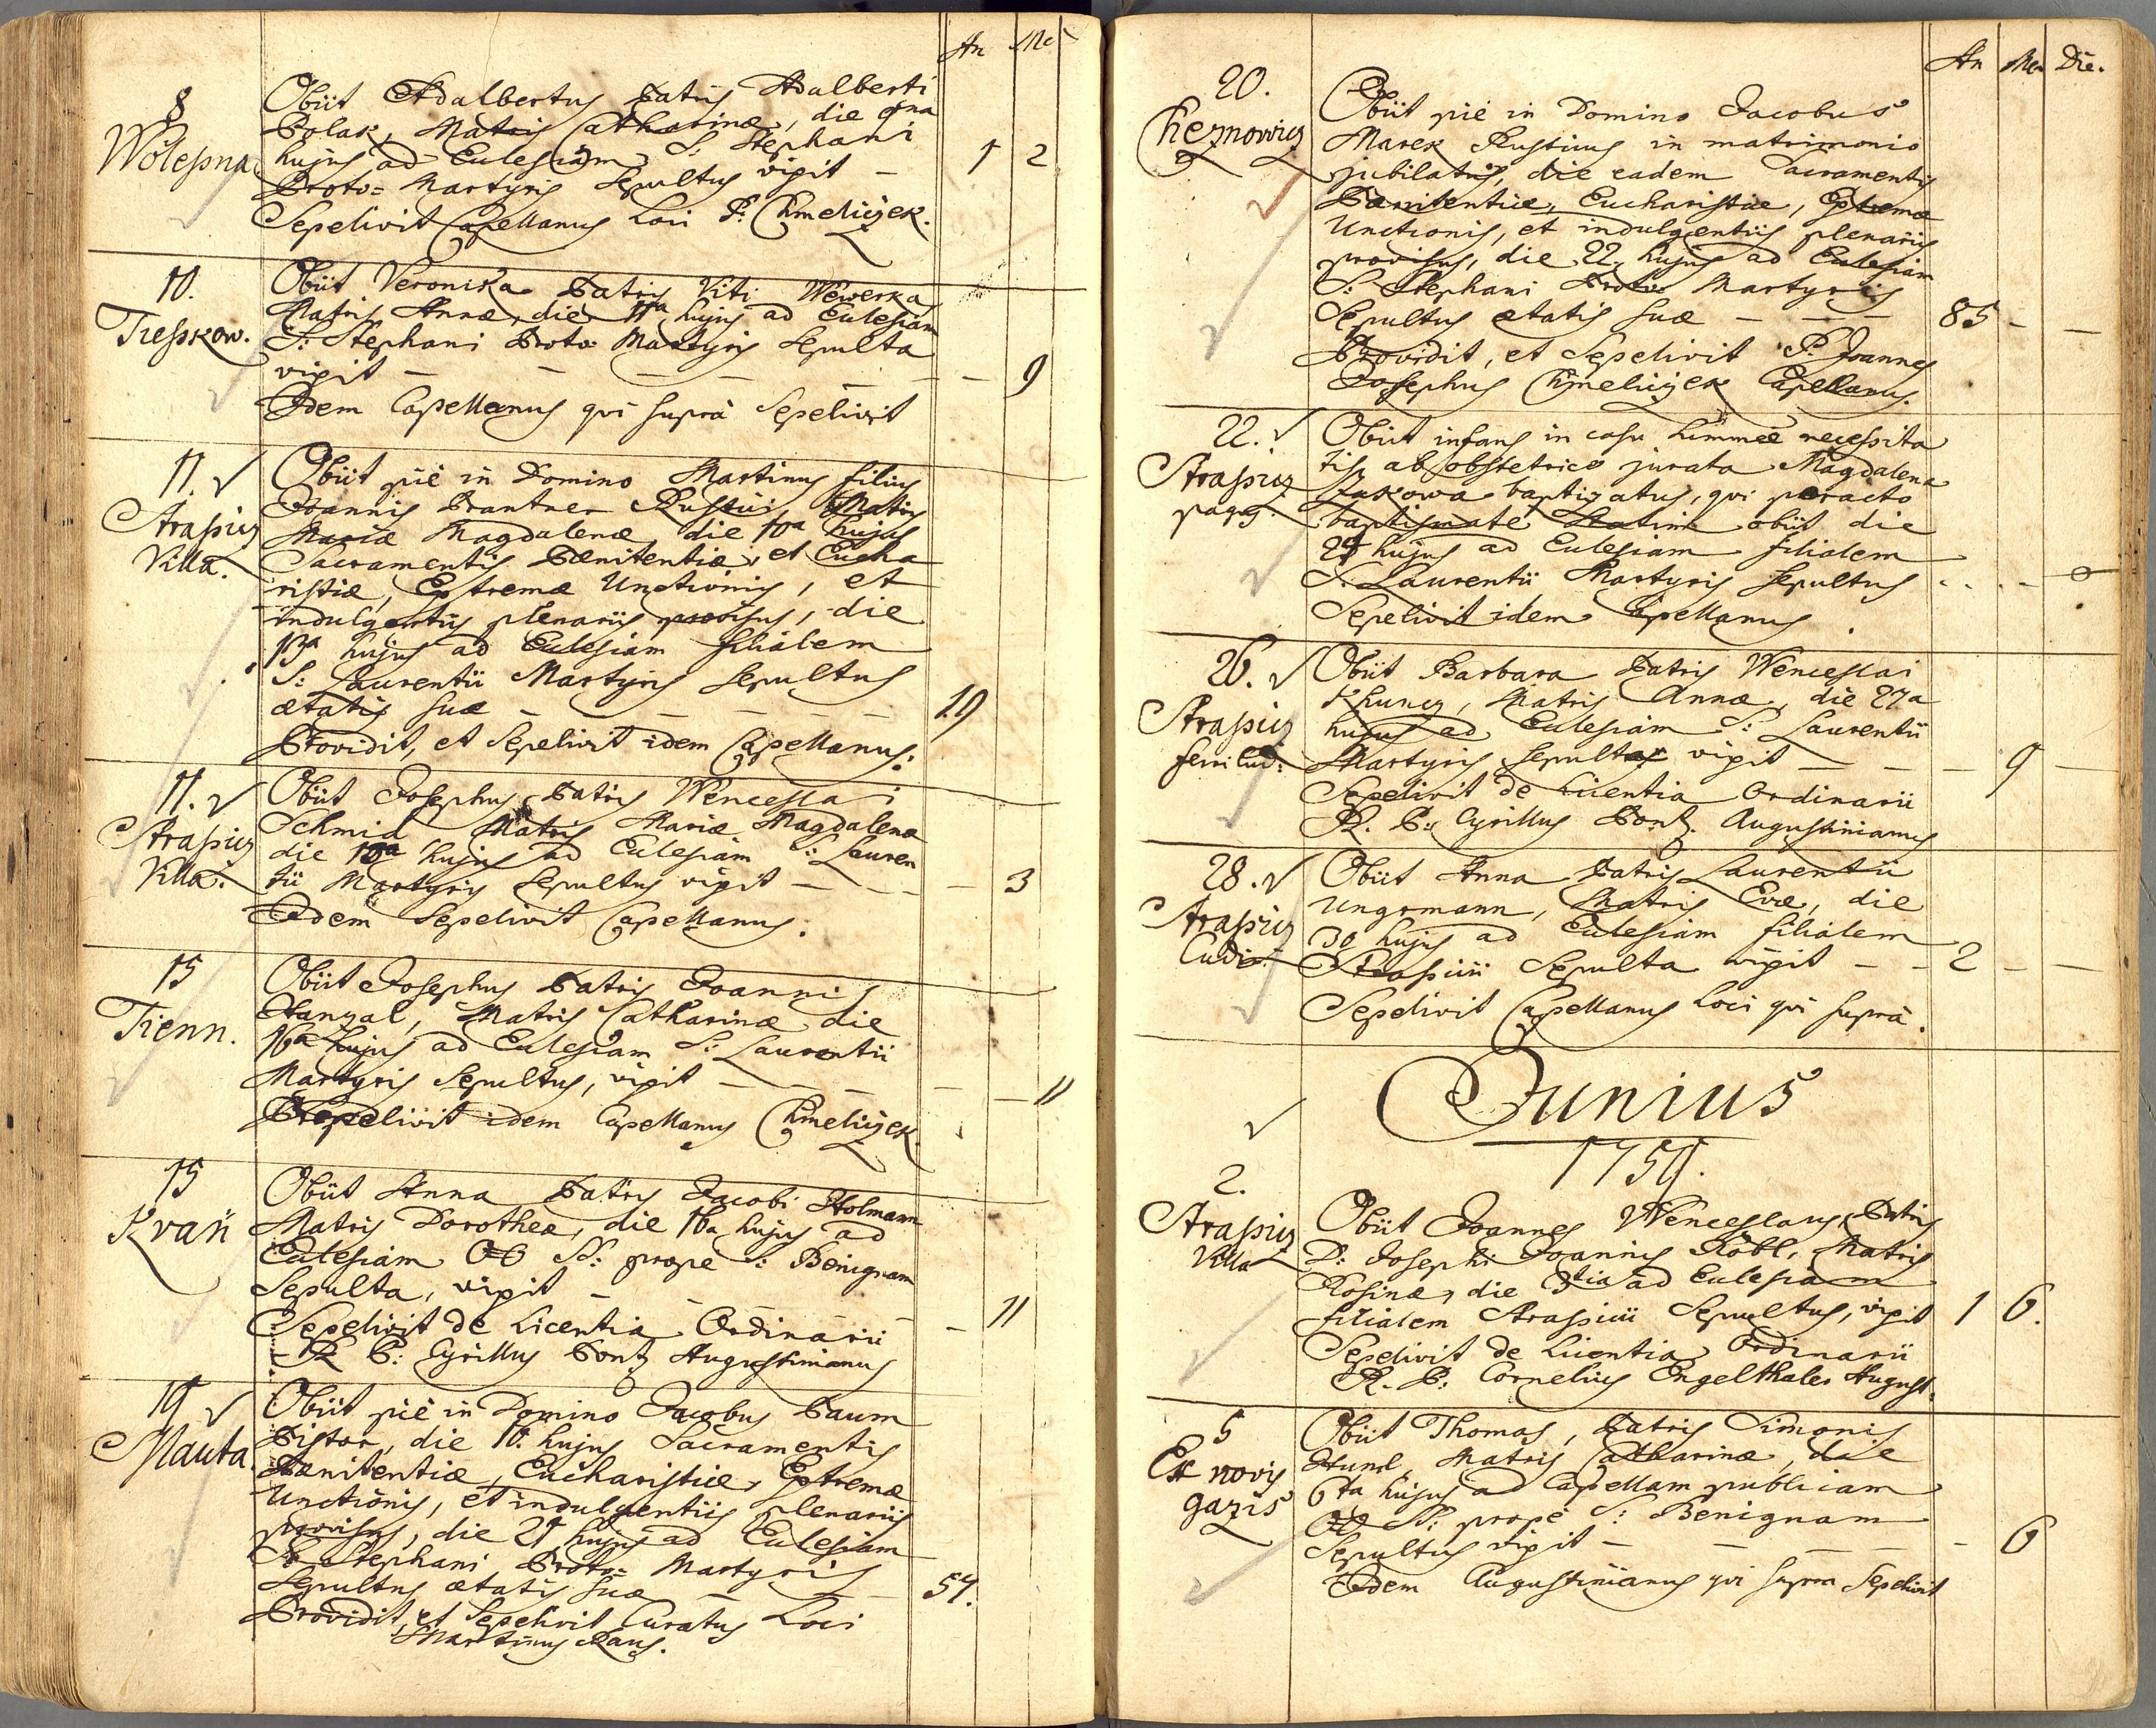 An Me
8
Wolessna
Obiit Adalbertus Patris Adalberti
Polak, Matris Catharinæ, die 9na
hujus ad Ecclesiam S: Stephani
Proto= Martyris Sepultus vixit – 1 2
Sepelivit Capellanus Loci P: Chmeliczek.
10.
Tiesskow.
Obiit Veronika Patris Viti Wewerka
Matris Annæ, die 11a hujus ad Ecclesiam
S: Stephani Proto= Martyris Sepulta
vixit – – – – – – 9
Idem Capellanus qui suprà Sepelivit
11.
Straßicz
Villa.
Obiit piè in Domino Martinus filius
Joannis Brantner Rustici, Matris
Mariæ Magdalenæ die 10a hujus
Sacramentis Pænitentiæ, et Eucha
ristiæ, Extremæ Unctionis, et
indulgentiis plenariis provisus, die
13a hujus ad Ecclesiam filialem
S: Laurentii Martyris sepultus
ætatis suæ – – – – – 19
Providit, et Sepelivit idem Capellanus.
11.
Straßicz
Villa.
Obiit Josephus Patris Wenceslai
Schmid Matris Mariæ Magdalenæ
die 13a hujus ad Ecclesiam S: Lauren
tii Martyris sepultus vixit – – – – 3
Idem Sepelivit Capellanus.
15
Tienn.
Obiit Josephus Patris Joannis
Hanzal, Matris Catharinæ die
16a hujus ad Ecclesiam S: Laurentii
Martyris Sepultus, vixit – – – – – 11
Sepelivit idem Capellanus Chmeliczek.
15
Kvaň
Obiit Anna Patris Jacobi Holmann
Matris Dorotheæ, die 16a hujus ad
Ecclesiam OO SS: prope S: Benignam
Sepulta, vixit – – – – – 11
Sepelivit de Licentia Ordinarii
R P: Cyrillus Pontz Augustinianus
19
Mauta.
Obiit piè in Domino Jacobus Baum
Pistor, die 10. hujus Sacramentis
Pænitentiæ, Eucharistiæ, Extremæ
Unctionis, et indulgentiis plenariis
provisus, die 21 hujus ad Ecclesiam
S: Stephani Proto= Martyris
Sepultus ætatis suæ – – – 54.
Providit, et Sepelivit Curatus Loci
Martinus Rauš.
An Me Die.
20.
Cheznowicz
Obiit piè in Domino Jacobus
Marek Rusticus in matrimonio
jubilatus, die eadem Sacramentis
Pænitentiæ, Eucharistiæ, Extremæ
Unctionis, et indulgentiis plenariis
provisus, die 22 hujus ad Ecclesiam
S: Stephani Proto= Martyris
Sepultus ætatis suæ – – – 85 – –
Providit, et Sepelivit P: Joannes
Josephus Chmeliczek Capellanus.
22.
Straßicz
pagg:
Obiit infans in casu summæ necessita
tis, ab obstetrice jurata Magdalena
Zukowa baptizatus, qui peracto
baptismate statim obiit die
24 hujus ad Ecclesiam filialem
S: Laurentii Martyris sepultus
Sepelivit idem Capellanus
26.
Straßicz
Obiit Barbara Patris Wenceslai
Khuncz, Matris Annæ, die 27a
hujus ad Ecclesiam S: Laurentii
Martyris sepulta vixit – – – 9 –
Sepelivit de Licentia Ordinarii
R. P: Cyrillus Pontz. Augustinianus
28.
Straßicz
Obiit Anna Patris Laurentii
Ungrmann, Matris Evæ, die
30 hujus ad Ecclesiam filialem
Straßicii Sepulta vixit – – 2 – –
Sepelivit Capellanus Loci qui suprà.
Junius
1759.
2.
Straßicz
Villa
Obiit Joannes Wenceslaus, Patris
D: Josephi Joannis Köbl, Matris
Rosinæ, die 3tia ad Ecclesiam
filialem Straßicii Sepultus, vixit 1 6.
Sepelivit de Licentia Ordinarii
R. P: Cornelius Engelthaler August.
5
Ex novis
gazis
Obiit Thomas, Patris Simonis
Hunl, Matris Catharinæ, die
6ta hujus ad Capellam publicam
OO SS: propè S: Benignam
Sepultus vixit – – – – – 6
Idem Augustinianus qui supra Sepelivit